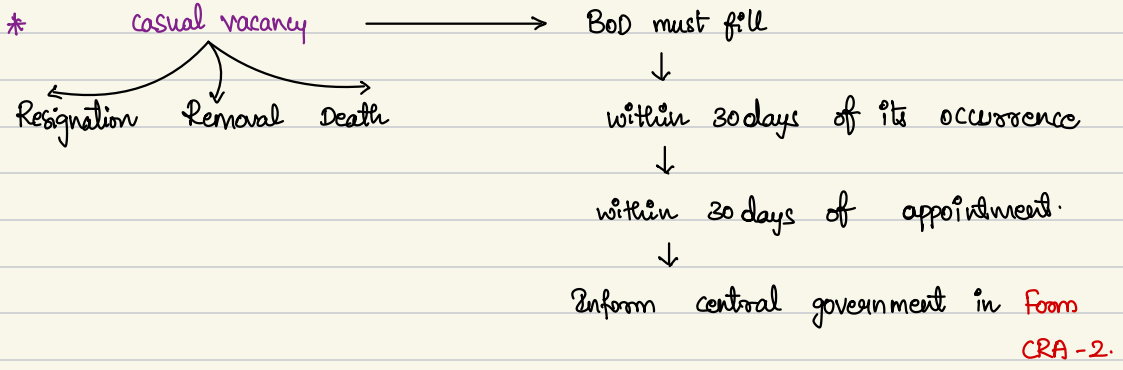 * casual vacancy → BOD must fill
Resignation Removal Death
↓
within 30 days of its occurrence
↓
within 30 days of appointment.
↓
Inform central government in Form
CRA-2.